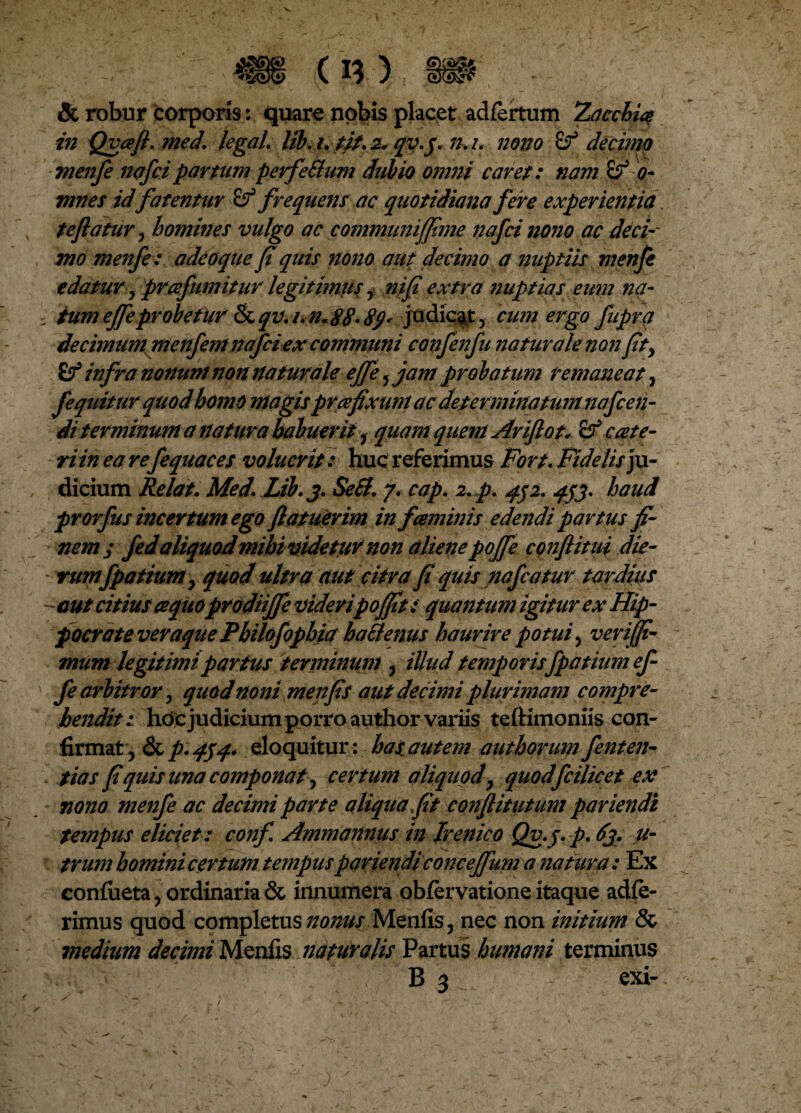 ( 13 )
& robur corporis: quare nobis placet adſertum Zacchiæ
in Qvæſt. med. legal. lib. 1. tit. 2. qv. 5. n. 1. nono & decimo
menſe naſci partum perfectum dubio omni caret: nam & o-
mnes id fatentur & frequens ac quotidiana fere experientia
teſtatur, homines vulgo ac communiſſime naſci nono ac deci-
mo menſe: adeoque ſi quis nono aut decimo a nuptiis menſe
edatur, præſumitur legitimus, niſi extra nuptias eum na-
tum eſſe probetur & qv. 1. n. 88. 89. judicat, cum ergo ſupra
decimum menſem naſci ex communi conſenſu naturale non ſit,
& infra nonum non naturale eſſe, jam probatum remaneat,
ſequitur quod homo magis præfixum ac determinatum naſcen-
di terminum a natura habuerit, quam quem Ariſtot. & cæte-
ri in ea re ſequaces volucrit: huc referimus Fort. Fidelis ju-
dicium Relat. Med. Lib. 3. Sect. 7. cap. 2. p. 452. 453. haud
prorſus incertum ego ſtatuerim in fœminis edendi partus fi-
nem; ſed aliquod mihi videtur non aliene poſſe conſtitui die-
rum ſpatium, quod ultra aut citra ſi quis naſcatur tardius
aut citius æquo prodiiſſe videri poſſit: quantum igitur ex Hip-
pocrate veraque Philoſophia hactenus haurire potui, veriſſi-
mum legitimi partus terminum, illud temporis ſpatium eſ-
ſe arbitror, quod noni menſis aut decimi plurimam compre-
hendit: hoc judicium porro author variis teſtimoniis con-
firmat, & p. 454. eloquitur: has autem authorum ſenten-
tias ſi quis una componat, certum aliquod, quod ſcilicet ex
nono menſe ac decimi parte aliqua ſit conſtitutum pariendi
tempus eliciet: conf. Ammannus in Irenico Qv. 5. p. 63. u-
trum homini certum tempus pariendi conceſſum a natura: Ex
conſueta, ordinaria & innumera obſervatione itaque adſe-
rimus quod completus nonus Menſis, nec non initium &
medium decimi Menſis naturalis Partus humani terminus
B 3 exi-